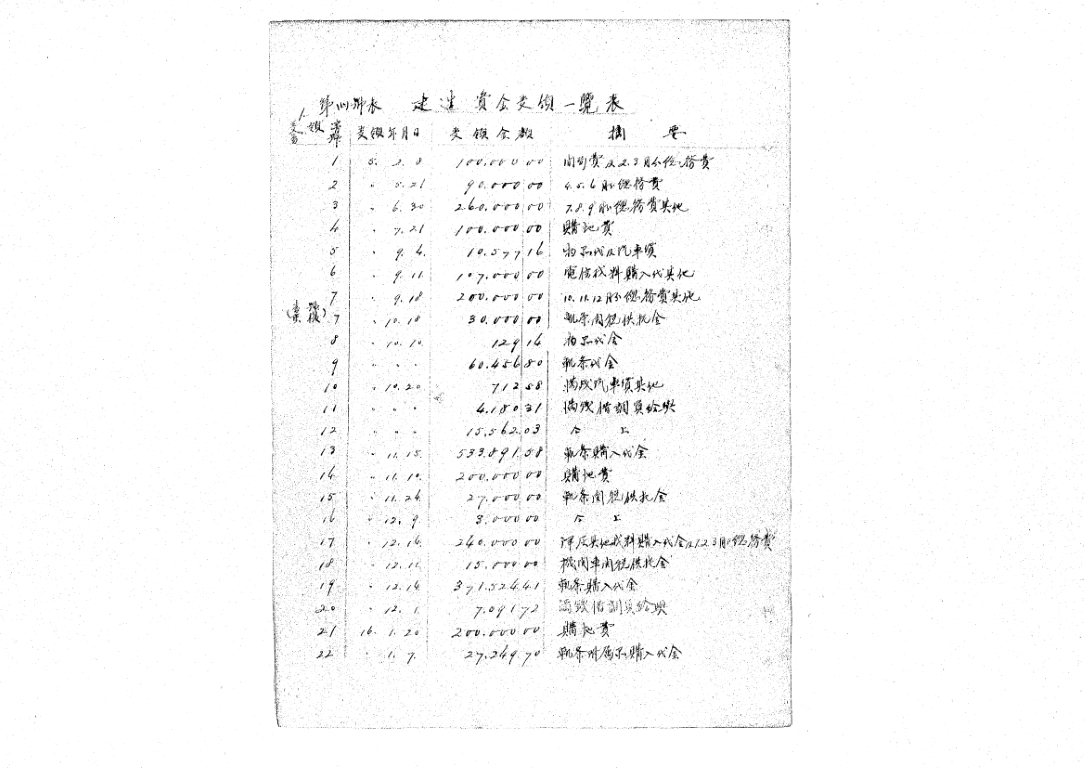 第四號表 建造資金受領一覽表
受領番號 受領年月日 受領金額 摘要
1 5. 2. 8 100.000 00 開辦費及2.3月分總務費
2 〃 5.21 90.000 00 4.5.6月分總務費
3 〃 6.30 260.000 00 7.8.9月分總務費其他
4 〃 7.21 100.000 00 購地費
5 〃 9. 4. 10.577 16 物品代及汽車賃
6 〃 9. 11 107.000 00 電信材料購入代其他
7 〃 9. 18 200.000 00 10.11.12月分總務費其他
7 〃 10. 18 30.000 00 軌条関税供託金
8 〃 10. 10 129 16 物品代金
9 〃 〃 〃 60.456 80 軌条代金
10 〃 10. 20 712 58 満鉄汽車賃其他
11 〃 〃 〃 4.180 31 満鉄借調員給與
12 〃 〃 〃 15.562.03 仝 上
13 〃 11. 15. 533.891.58 軌条購入代金
14 〃 11. 10. 200.000.00 購地費
15 〃 11. 26 27.000.00 軌条関税供託金
16 〃 12. 9 3.000 00 仝 上
17 〃 12. 16 240.000 00 其他材料購入代金及1.2.3月分總務費
18 〃 12. 11 15.000 00 機関車関税供託金
19 〃 12. 14 371.524.41 軌条購入代金
20 〃 12. 1. 7.091 72 満鉄借調員給與
21 16. 1. 20 200.000 00 購地費
22 〃 1. 7. 27.249 70 軌条附属品購入代金